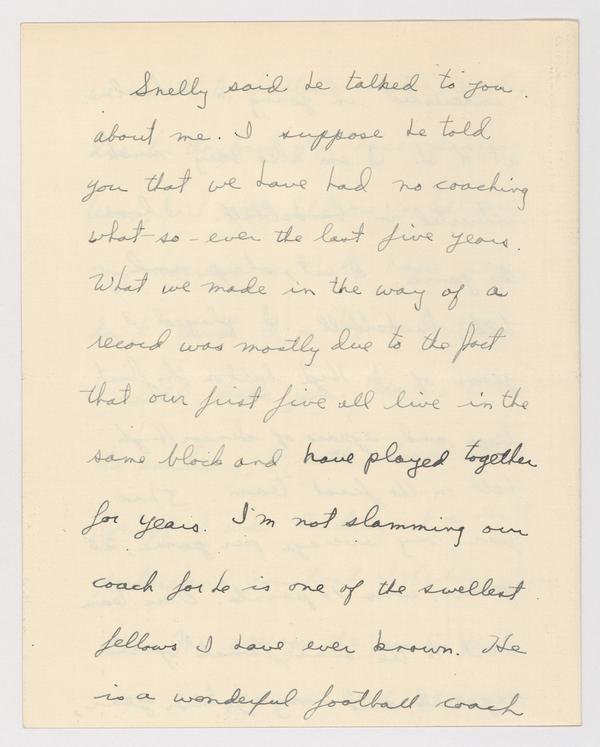 Snelly said he talked to you
about me. I suppose he told
you that we have had no coaching
what-so-ever the last five years.
What we made in the way of a
record was mostly due to the fact
that our first five all live in the
same block and have played together
for years. I'm not slamming our
coach for he is one of the swellest
fellows I have ever known. He
is a wonderful football coach